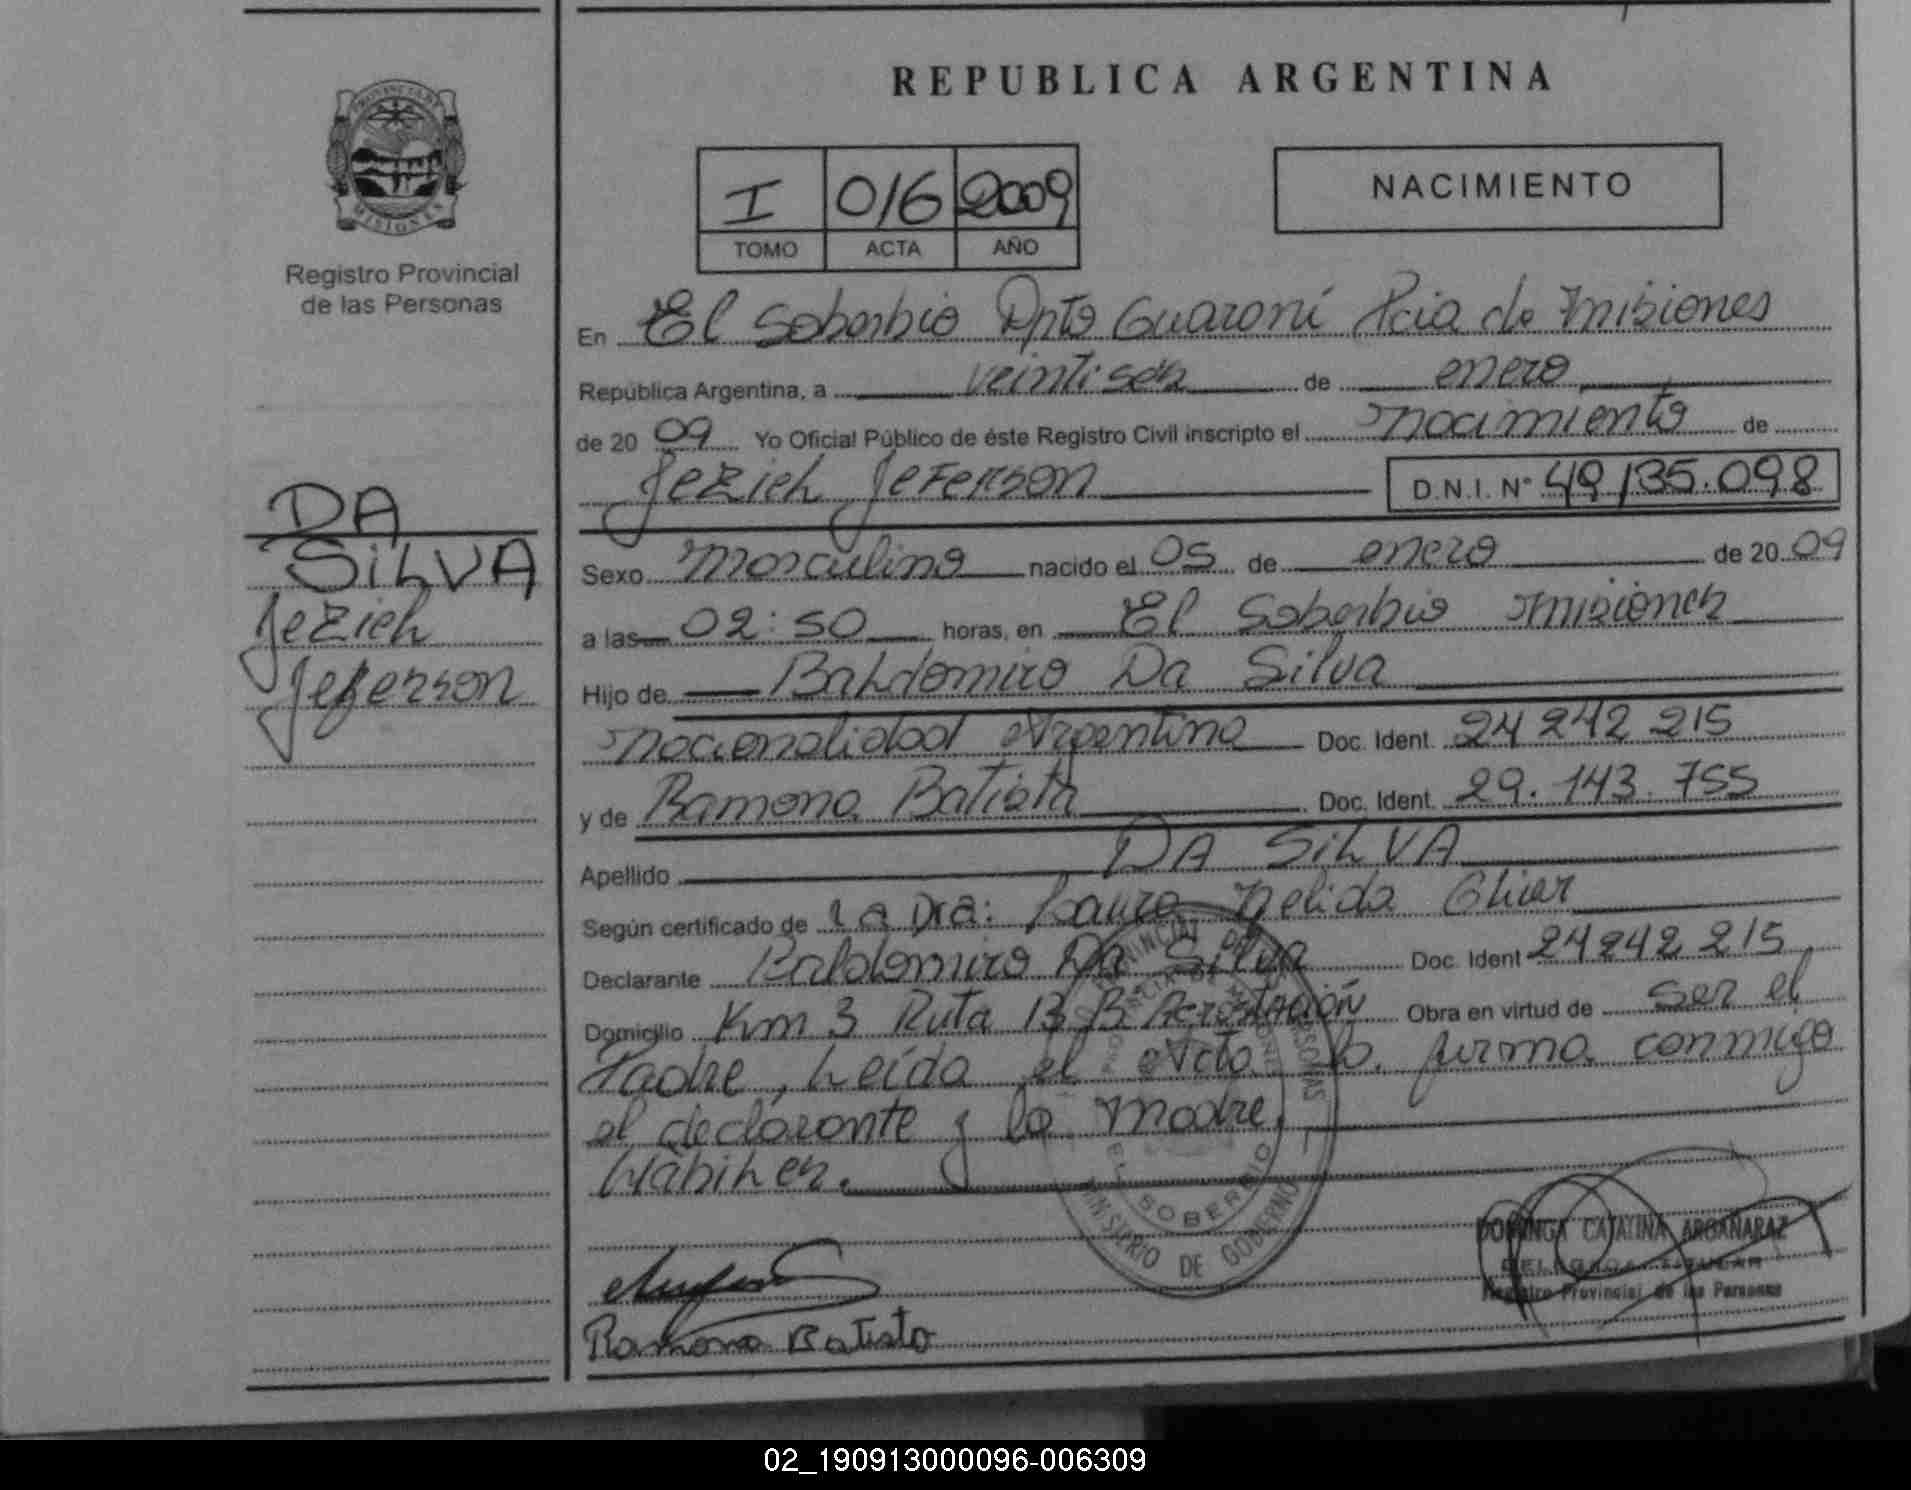 REPUBLICA ARGENTINA
PROVINCIA DE
MISIONES
Registro Provincial
de las Personas
I 016 2009
TOMO ACTA AÑO
NACIMIENTO
En El Soberbio Dpto Guaraní Pcia de Misiones
República Argentina, a veintiseis de enero
de 2009 Yo Oficial Público de éste Registro Civil inscripto el nacimiento de
Jeziel Jeferson D.N.I. N° 49135.098
DA
SILVA
Jeziel
Jeferson
Sexo masculino nacido el 05 de enero de 2009
a las 02:50 horas, en El Soberbio Misiones
Hijo de Baldomiro Da Silva
nacionalidad Argentina Doc. Ident. 24 242 215
y de Ramona Batista Doc. Ident. 29.143.755
Apellido DA SILVA
Según certificado de La Dra: Laura Nelida
Declarante Baldomiro Da Silva Doc. Ident 24242 215
Domicilio Km 3 Ruta 13 B° Obra en virtud de ser el
Padre, Leída el Acta la firma conmigo
el declarante y la Madre.
EL SOBERBIO
MINISTERIO DE GOBIERNO
DOMINGA CATALINA ARGAÑARAZ
DELEGADA TITULAR
Registro Provincial de las Personas
Ramona Batista
02_190913000096-006309